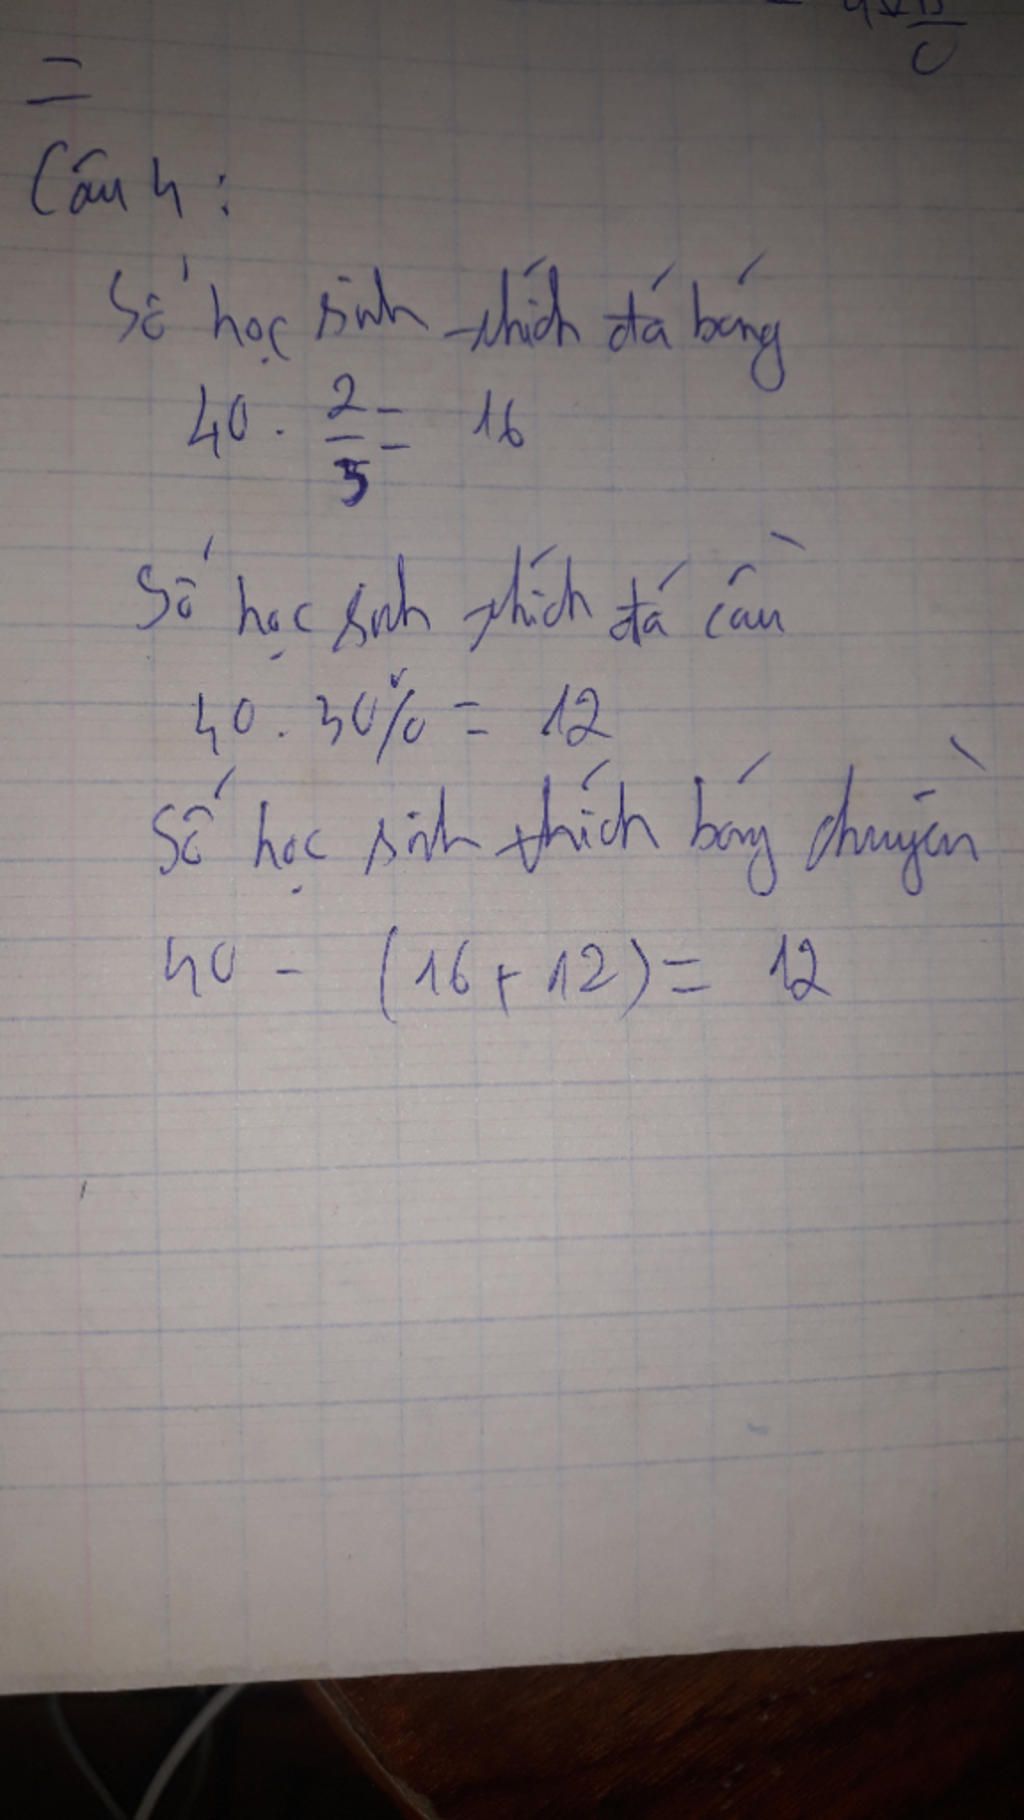 =
Câu 4:
Số học sinh thích đá bóng
40 . 2/5 = 16
Số học sinh thích đá cầu
40 . 30% = 12
Số học sinh thích bóng chuyền
40 - (16 + 12) = 12